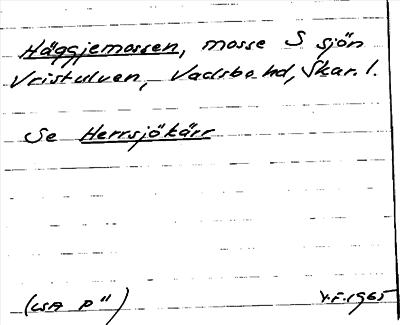 Häggjemossen, mosse S sjön
Vristulven, Vadsbo hd, Skar. l.
Se Herrsjökärr
(LSA P 11)
Y.F. 1965